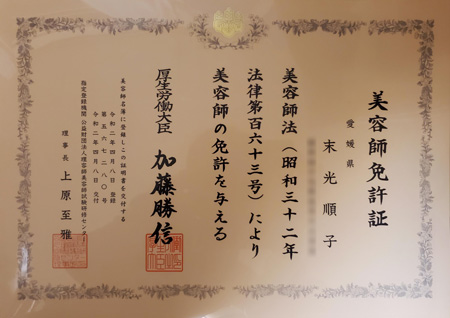 美容師免許証
愛媛県
末光順子
美容師法（昭和三十二年
法律第百六十三号）により
美容師の免許を与える
厚生労働大臣 加藤勝信
美容師名簿に登録しこの証明書を交付する
令和二年四月八日 登録
第五六七二八〇号
令和二年四月八日 交付
指定登録機関 公益財団法人理容師美容師試験研修センター
理事長 上原至雅